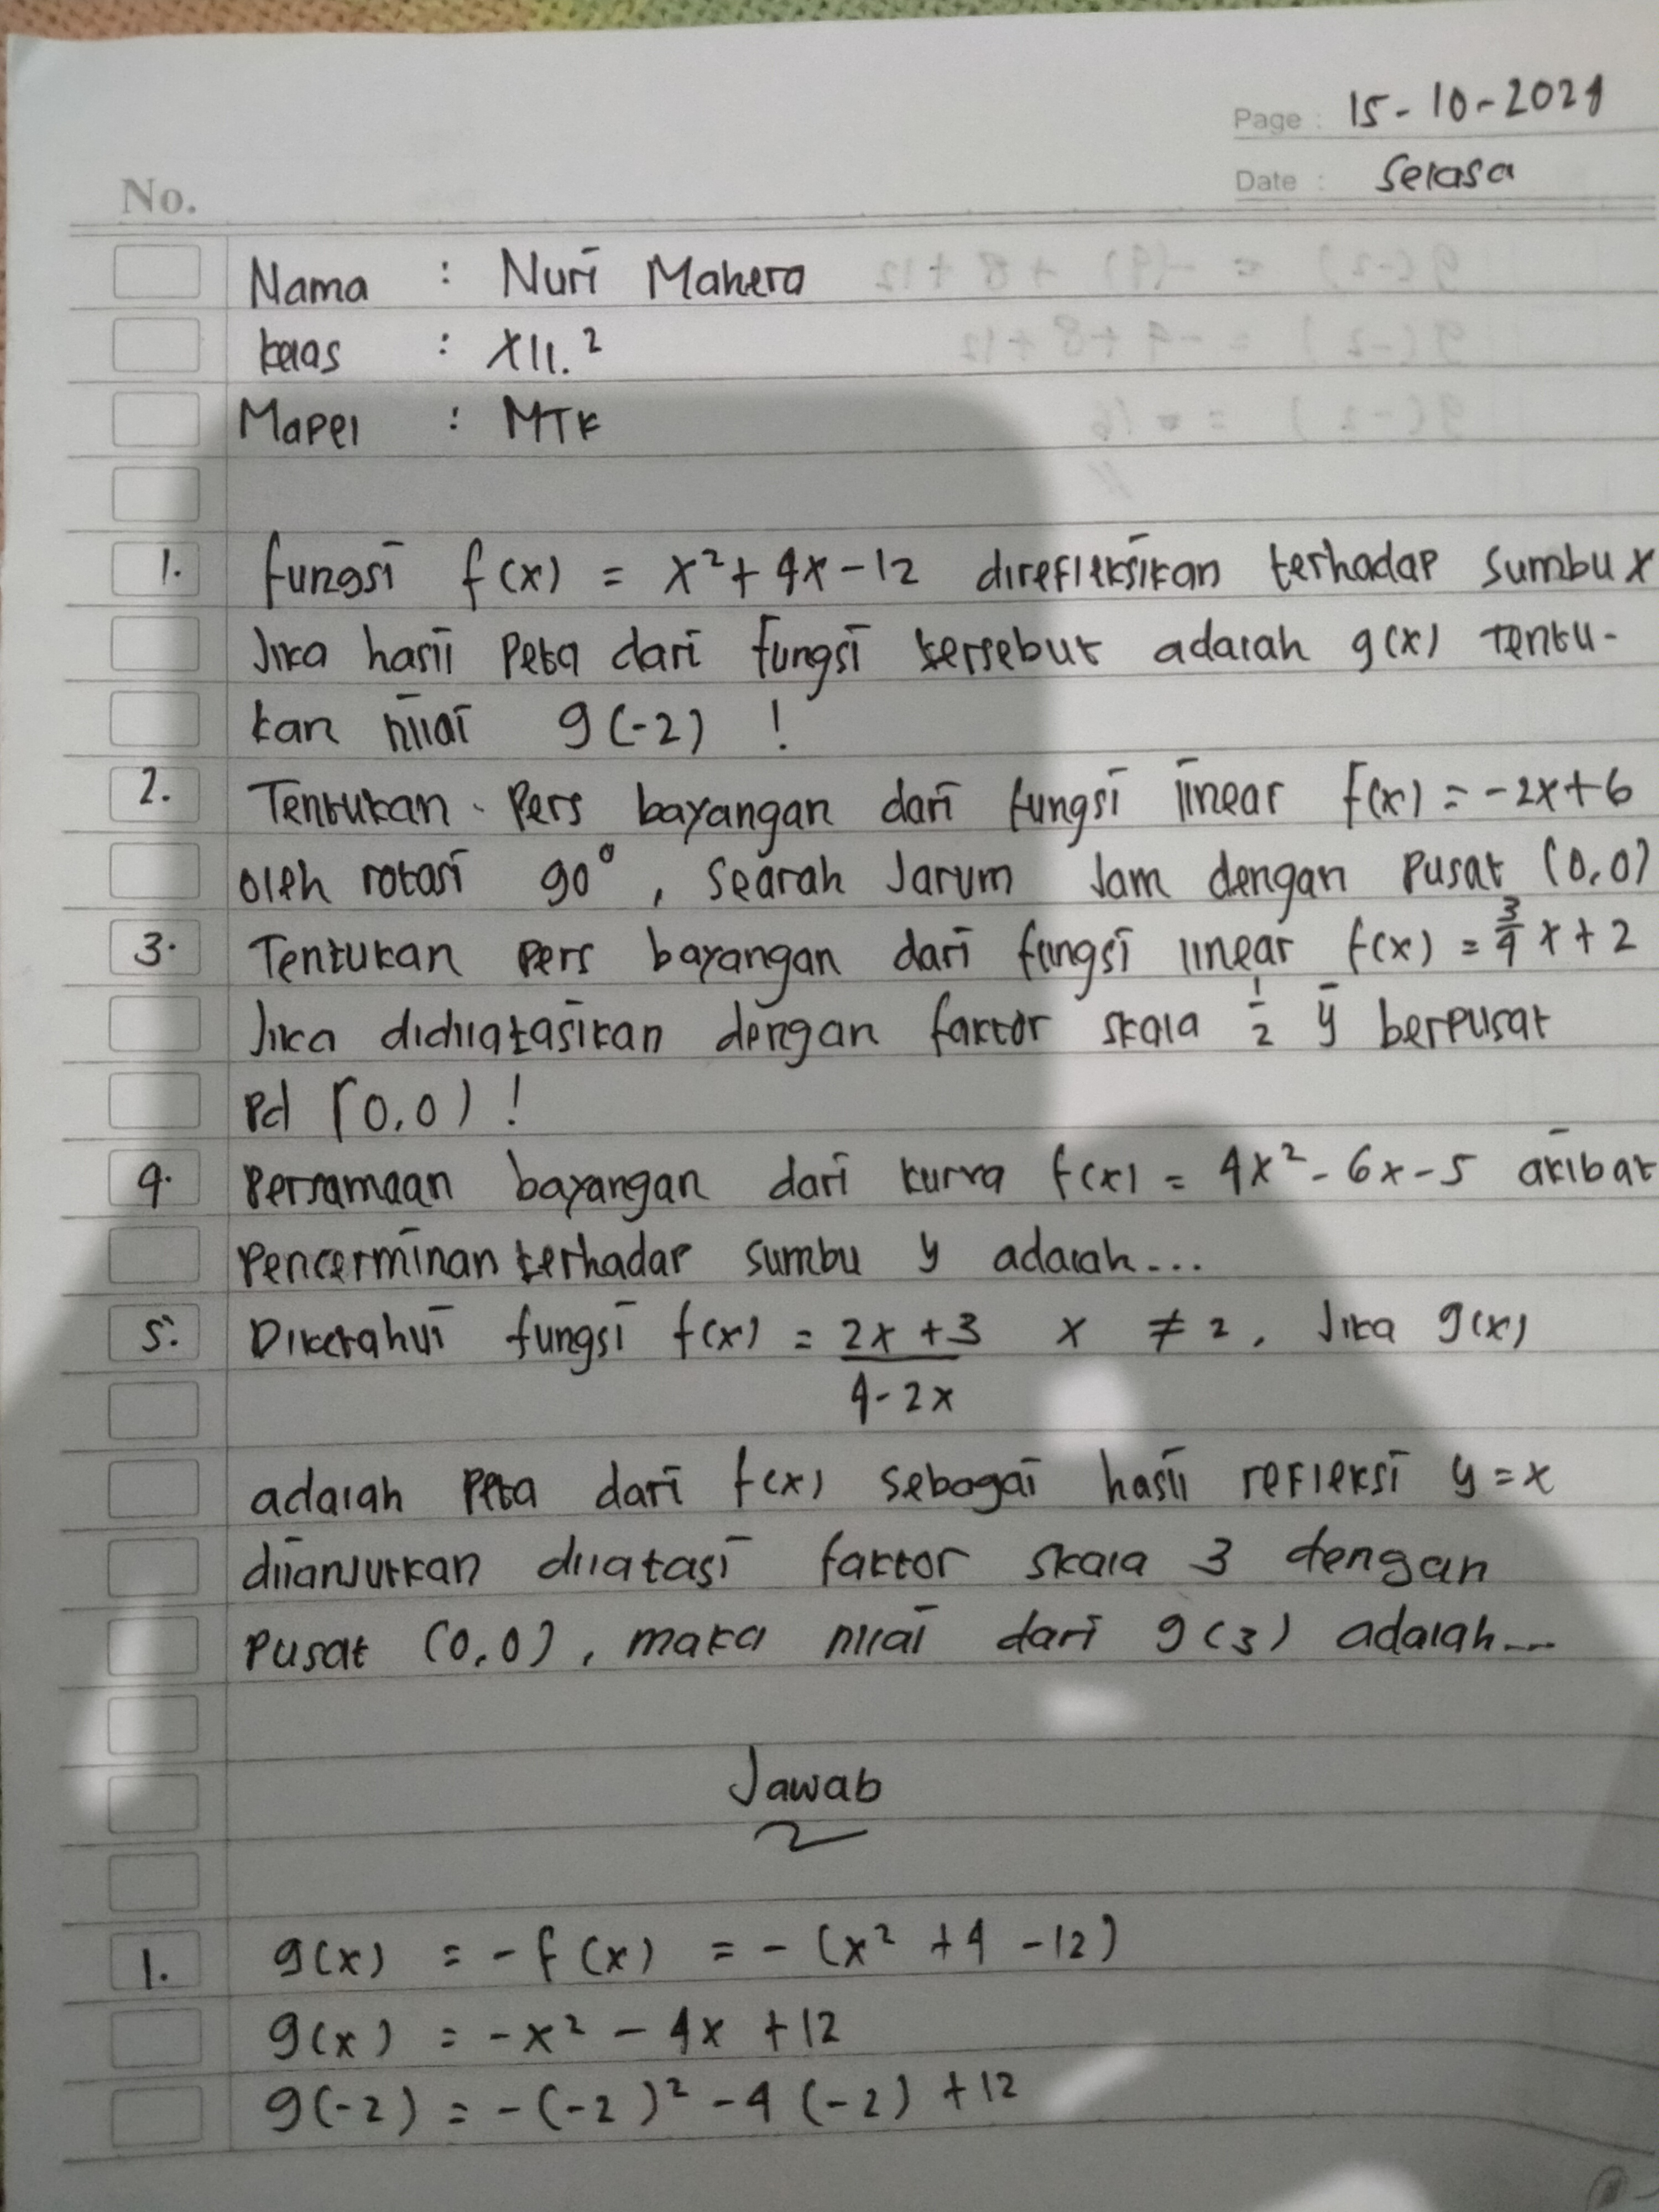 Page : 15-10-2024
No.
Date : Selasa
Nama : Nuri Mahera
kelas : XII.2
Mapel : MTK
1. fungsi f(x) = x² + 4x - 12 direfleksikan terhadap sumbu x
Jika hasil Peta dari fungsi tersebut adalah g(x) Tentu-
kan nilai g(-2) !
2. Tentukan Pers bayangan dari fungsi linear f(x) = -2x+6
oleh rotasi 90°, Searah Jarum Jam dengan Pusat (0,0)
3. Tentukan Pers bayangan dari fungsi linear f(x) = 3/4 x + 2
Jika didilatasikan dengan faktor skala 1/2 y berpusat
Pd (0,0) !
4. Persamaan bayangan dari kurva f(x) = 4x² - 6x - 5 akibat
Pencerminan terhadap sumbu y adalah...
5. Diketahui fungsi f(x) = 2x + 3 x ≠ 2, Jika g(x)
4 - 2x
adalah Peta dari f(x) sebagai hasil refleksi y = x
dilanjutkan dilatasi faktor skala 3 dengan
Pusat (0,0), maka nilai dari g(3) adalah...
Jawab
1. g(x) = - f(x) = - (x² + 4 - 12)
g(x) = -x² - 4x + 12
g(-2) = -(-2)² - 4 (-2) + 12